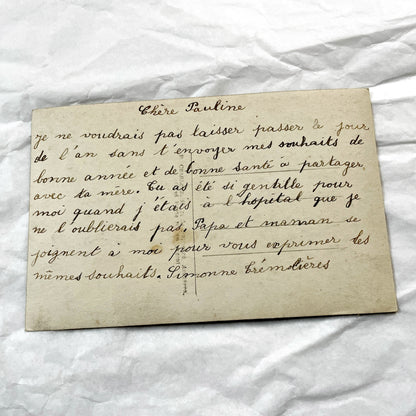 Chère Pauline
je ne voudrais pas laisser passer le jour
de l'an sans t'envoyer mes souhaits de
bonne année et de bonne santé à partager
avec ta mère. Tu as été si gentille pour
moi quand j'étais à l'hôpital que je
ne l'oublierais pas. Papa et maman se
joignent à moi pour vous exprimer les
mêmes souhaits. Simonne